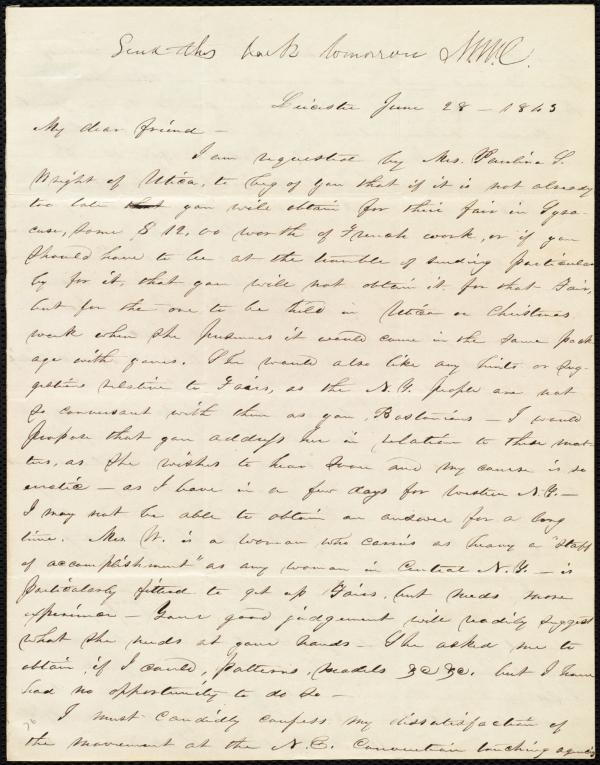 Send this back tomorrow M.W.C.
Leicester June 28 - 1843
My dear friend -
I am requested by Mrs. Paulina S.
Wright of Utica, to beg of you that if it is not already
too late you will obtain for their fair in Syra-
cuse, some $12,00 worth of French work, or if you
should have to be at the trouble of sending particular-
ly for it, that you will not obtain it for that Fair,
but for the one to be held in Utica on Christmas
week when she presumes it would come in the same pack
age with yours. She would also like any hints or sug-
gestions relative to Fairs, as the N.Y. people are not
so conversant with them as you Bostonians - I would
propose that you address her in relation to these mat-
ters, as she wishes to hear soon and my course is so
erratic - as I leave in a few days for western N.Y. -
I may not be able to obtain an answer for a long
time. Mrs W. is a woman who carries as heavy a "staff
of accomplishment" as any woman in Central N.Y. - is
particularly fitted to get up Fairs, but needs more
experience - Your good judgement will readily suggest
what she needs at your hands - She asked me to
obtain, if I could, patterns, models &c &c. but I have
had no opportunity to do so -
I must candidly confess my dissatisfaction of
the movement at the N.E. Convention touching agencies